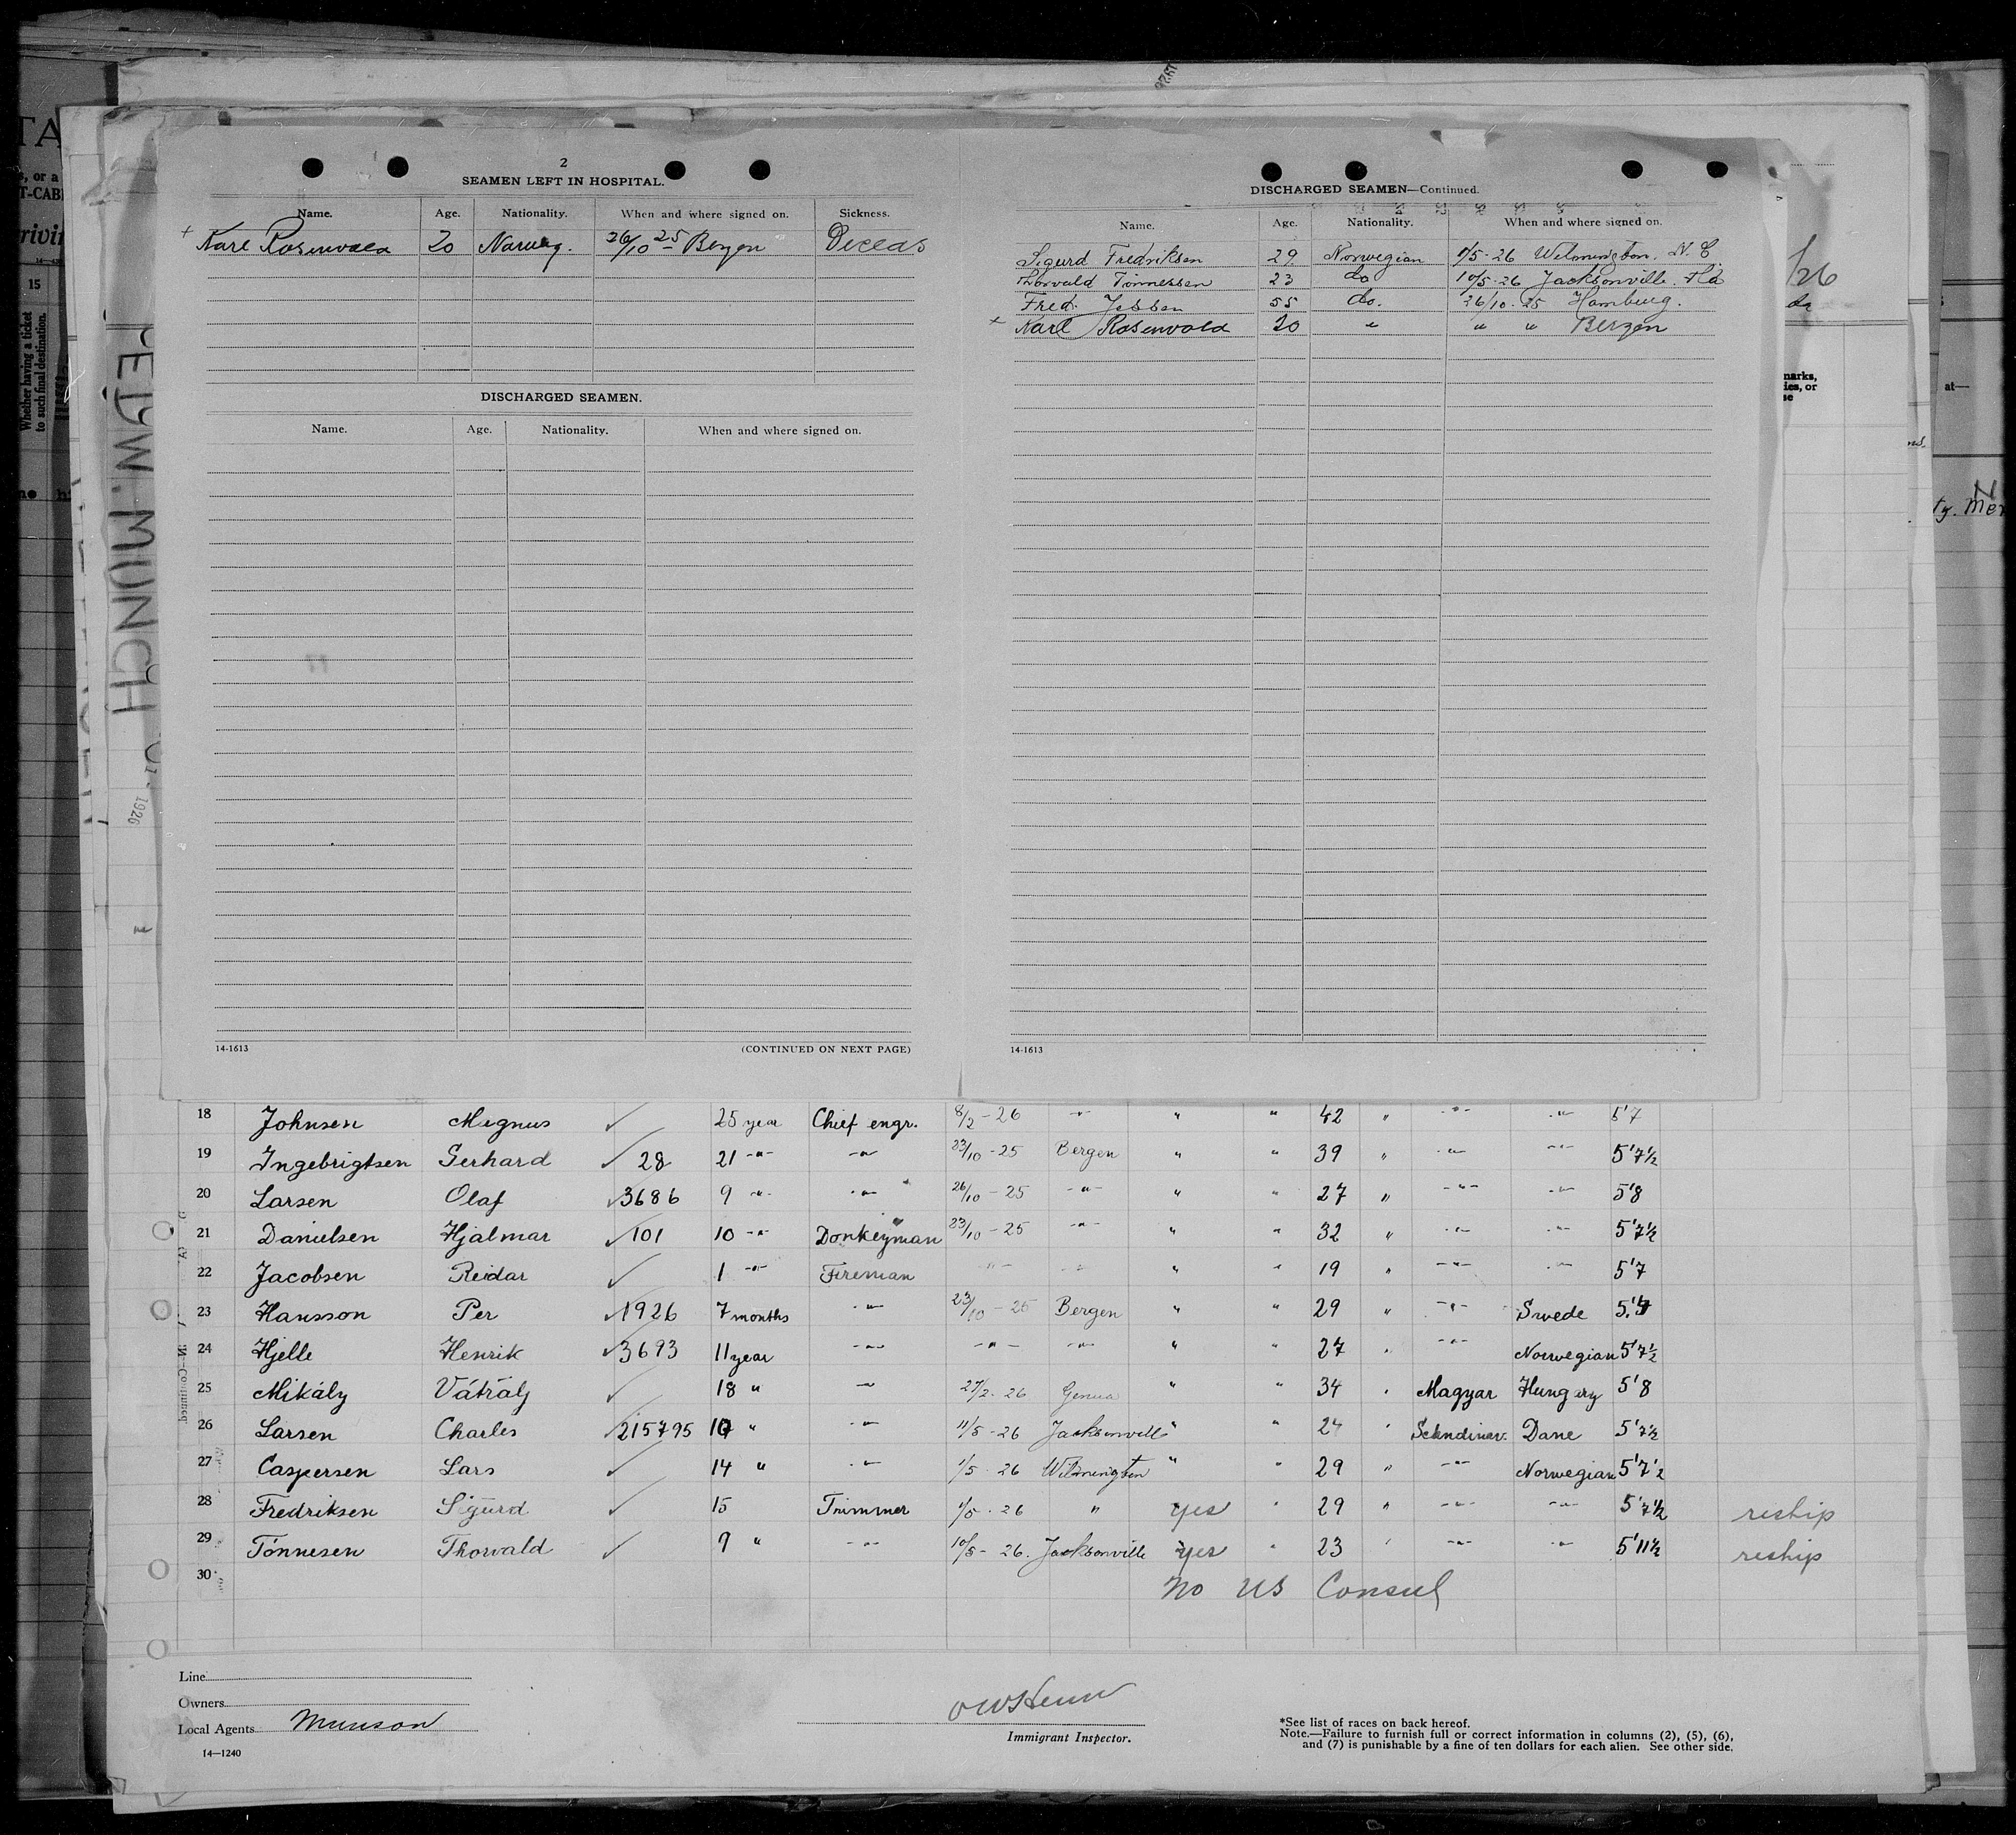 2
SEAMEN LEFT IN HOSPITAL.
Name. Age. Nationality. When and where signed on. Sickness.
+ Karl Rosenvald 20 Norweg. 26/10 25 Bergen Deceas
DISCHARGED SEAMEN.
Name. Age. Nationality. When and where signed on.
14-1613 (CONTINUED ON NEXT PAGE)
DISCHARGED SEAMEN—Continued.
Name. Age. Nationality. When and where signed on.
Sigurd Fredriksen 29 Norwegian 1/5-26 Wilmington. N. C.
Thorvald Tönnessen 23 do 10/5-26 Jacksonville. Fla
Fred. Jebsen 55 do. 26/10-25 Hamburg.
+ Karl Rosenvold 20 " " " Bergen
14-1613
TA
s, or a
T-CAB
rrivin
15
Whether having a ticket
to such final destination.
EDW. MUNCH
1926
/26
marks,
ies, or
se
at—
ty. Mex
18 Johnsen Magnus ✓ 25 year Chief engr. 8/2-26 -"- " " 42 " -"- -"- 5'7
19 Ingebrigtsen Gerhard ✓ 28 21 -"- -"- 23/10-25 Bergen " " 39 " -"- -"- 5'7½
20 Larsen Olaf ✓ 3686 9 -"- -"- 26/10-25 -"- " " 27 " -"- -"- 5'8
21 Danielsen Hjalmar ✓ 101 10 -"- Donkeyman 23/10-25 -"- " " 32 " -"- -"- 5'7½
22 Jacobsen Reidar ✓ 1 -"- Fireman -"- -"- " " 19 " -"- -"- 5'7
23 Hansson Per ✓ 1926 7 months -"- 23/10-25 Bergen " " 29 " -"- Swede 5'7
24 Hjelle Henrik ✓ 3693 11 year -"- -"- -"- " " 27 " -"- Norwegian 5'7½
25 Mikály Vátrály ✓ 18 " -"- 27/2-26 Genua " " 34 " Magyar Hungary 5'8
26 Larsen Charles ✓ 215795 10 " -"- 11/5-26 Jacksonville " " 24 " Skandinav. Dane 5'7½
27 Caspersen Lars ✓ 14 " -"- 1/5-26 Wilmington " " 29 " -"- Norwegian 5'7½
28 Fredriksen Sigurd ✓ 15 Trimmer 1/5-26 " yes " 29 " -"- -"- 5'7½ reship
29 Tönnesen Thorvald ✓ 9 " -"- 10/5-26. Jacksonville yes " 23 " -"- -"- 5'11½ reship
30 No US Consul
Line
Owners
Local Agents Munson
14—1240
Immigrant Inspector.
*See list of races on back hereof.
Note.—Failure to furnish full or correct information in columns (2), (5), (6),
and (7) is punishable by a fine of ten dollars for each alien. See other side.